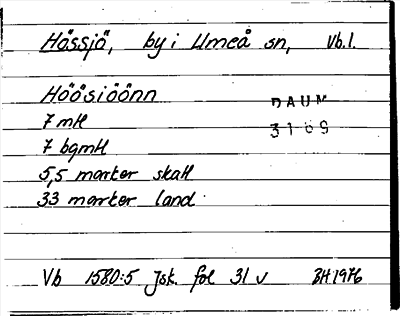 Hössjö, by i Umeå sn, Vb.l.
Höösiöönn
DAUM
7 mtl
3169
7 bgmtl
5,5 marker skatt
33 marker land
Vb 1580:5 Jsk. fol 31 v BH 1976